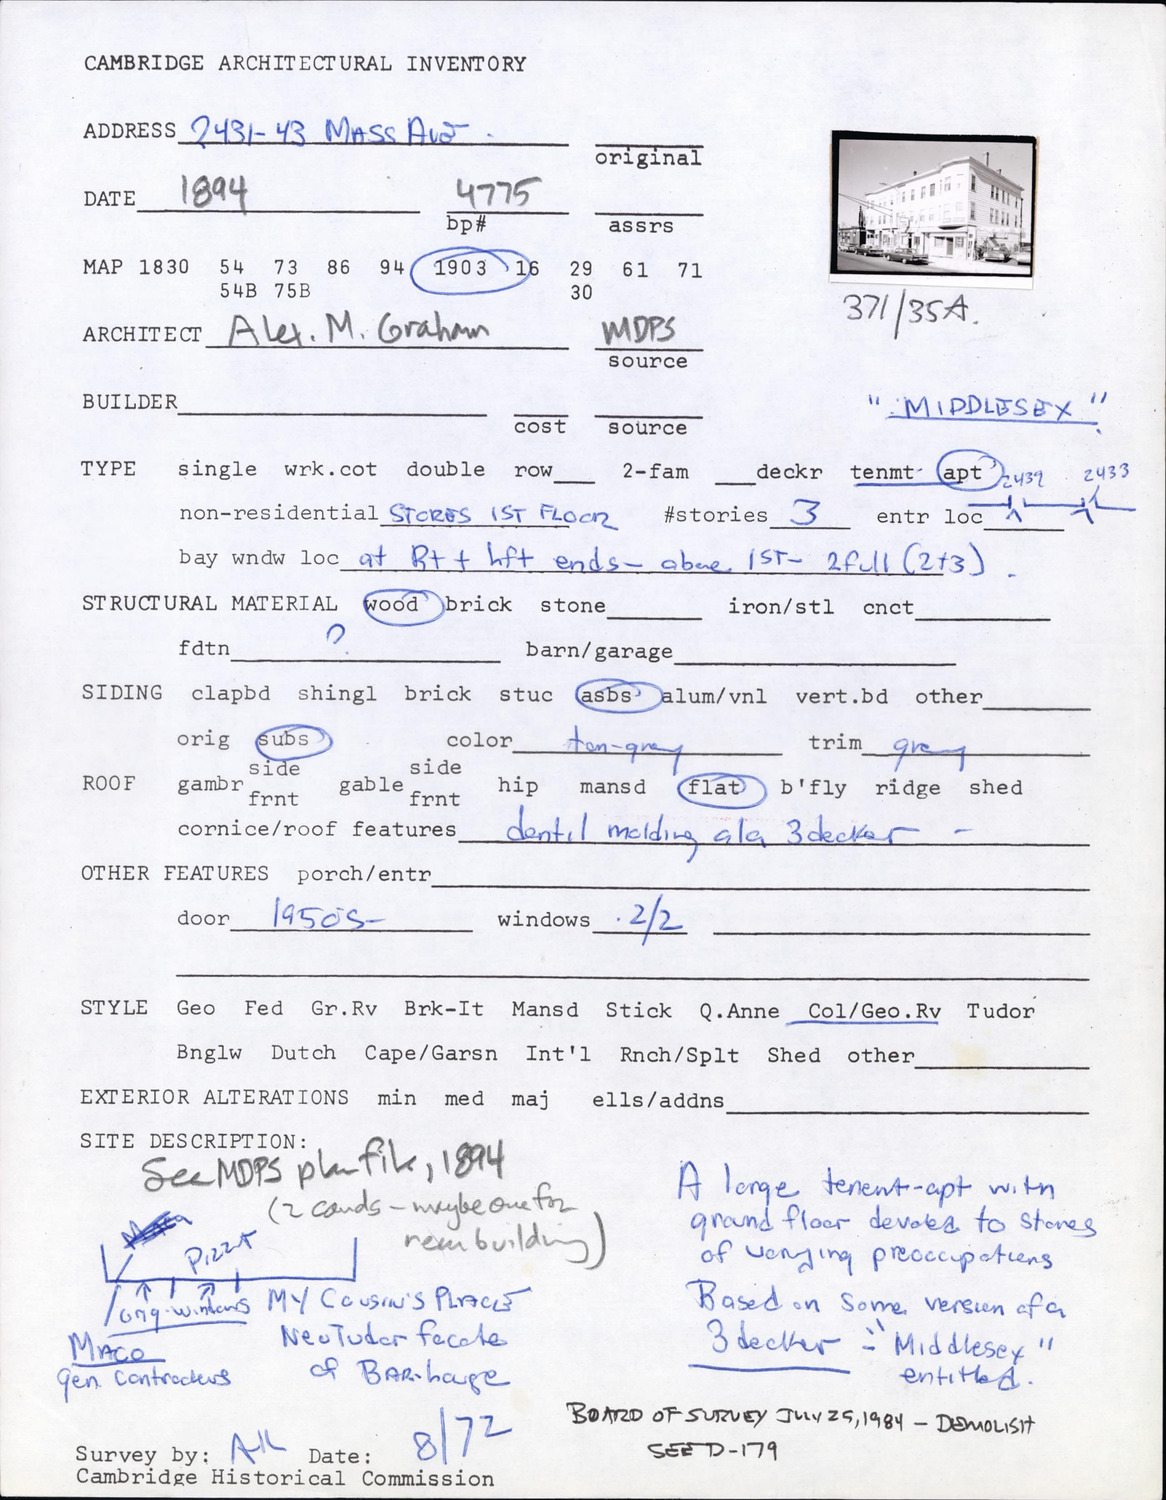 CAMBRIDGE ARCHITECTURAL INVENTORY
ADDRESS 2431-43 MASS AVE.
original
DATE 1894 4775
bp# assrs
MAP 1830 54 73 86 94 1903 16 29 61 71
54B 75B 30
371/35A.
ARCHITECT Alex. M. Graham MDPS
source
BUILDER
cost source
"MIDDLESEX"
TYPE single wrk.cot double row 2-fam deckr tenmt apt
2439 2433
non-residential STORES 1ST FLOOR #stories 3 entr loc
bay wndw loc at Rt + left ends - above 1ST - 2 full (2+3).
STRUCTURAL MATERIAL wood brick stone iron/stl cnct
fdtn ? barn/garage
SIDING clapbd shingl brick stuc asbs alum/vnl vert.bd other
orig subs color tan-gray trim gray
side side
ROOF gambr gable hip mansd flat b'fly ridge shed
frnt frnt
cornice/roof features dentil molding ala 3decker -
OTHER FEATURES porch/entr
door 1950s- windows 2/2
STYLE Geo Fed Gr.Rv Brk-It Mansd Stick Q.Anne Col/Geo.Rv Tudor
Bnglw Dutch Cape/Garsn Int'l Rnch/Splt Shed other
EXTERIOR ALTERATIONS min med maj ells/addns
SITE DESCRIPTION:
See MDPS plan file, 1894
(2 cards - maybe one for
rear building)
Pizza
orig. windows
MACO
gen. contractors
MY COUSIN'S PLACE
NeoTudor facade
of BAR-lounge
A large tenent-apt with
ground floor devoted to stores
of varying preoccupations
Based on some version of a
3decker - "Middlesex"
entitled.
BOARD OF SURVEY JULY 25, 1984 - DEMOLISH
SEE D-179
Survey by: Date: 8/72
Cambridge Historical Commission